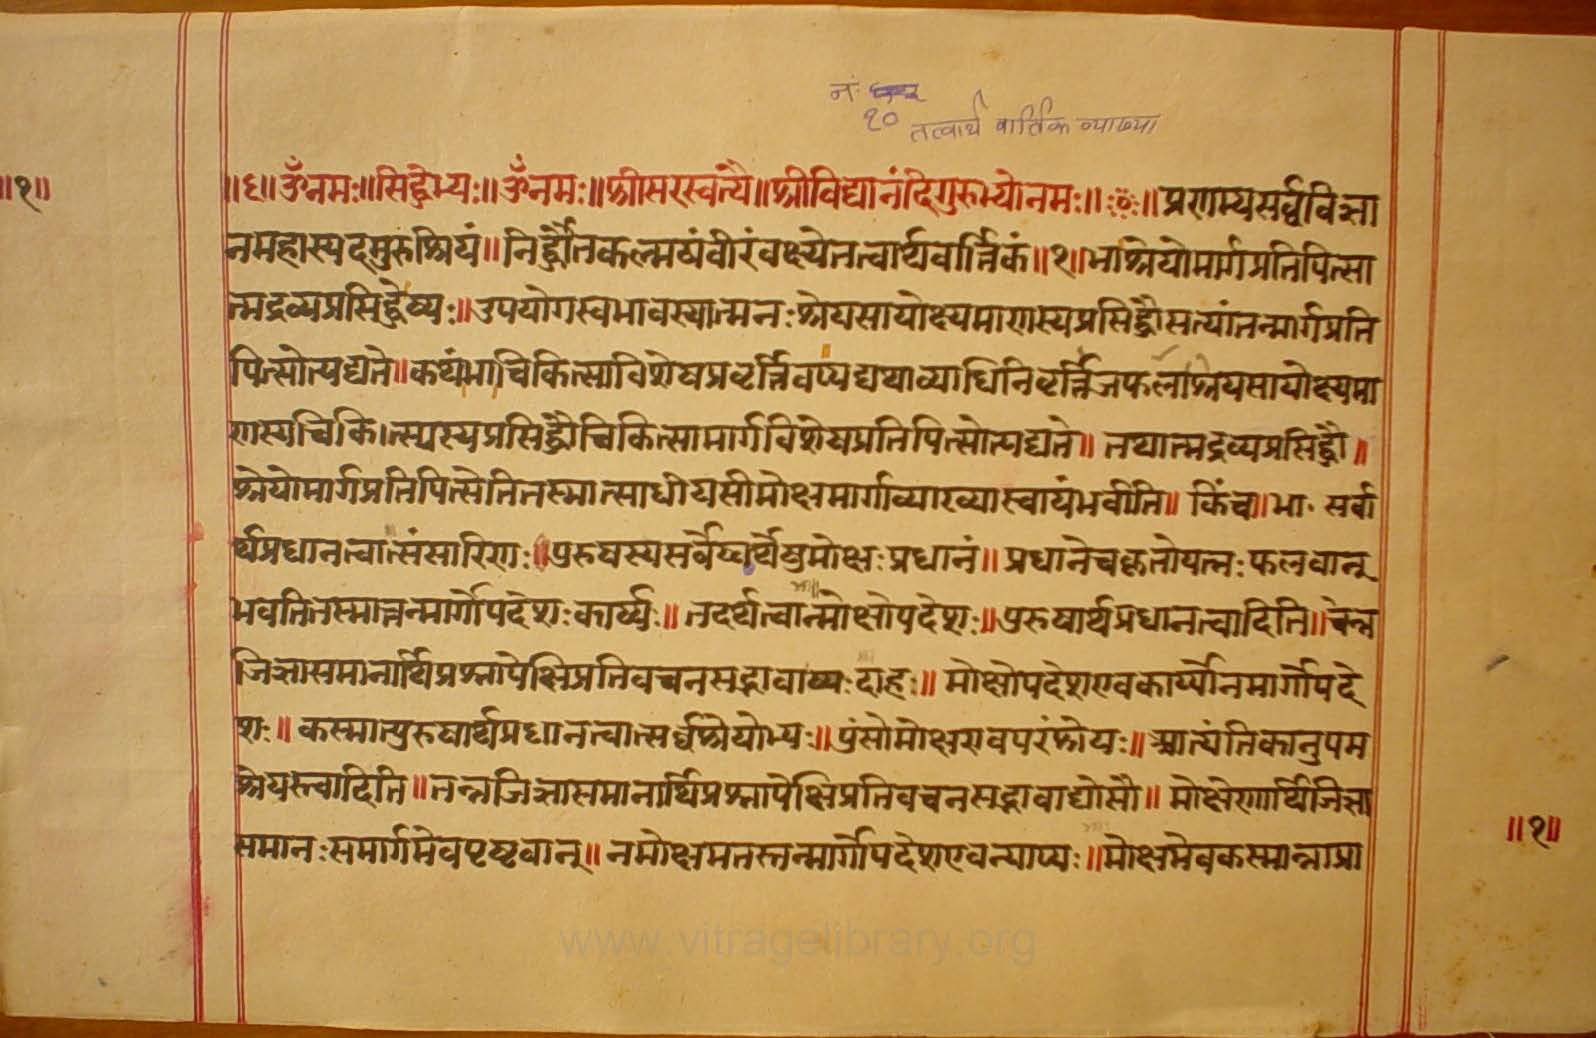 नं
१० तत्वार्थ वार्तिक व्याख्या
॥१॥
॥६॥ॐनमः॥सिद्धेभ्यः॥ॐनमः॥श्रीसरस्वत्यै॥श्रीविद्यानंदिगुरुभ्योनमः॥ः०ः॥प्रणम्यसर्वविज्ञा
नमहास्पदमुरुश्रियं॥निर्द्धौतकल्मषंवीरंवक्ष्येतत्वार्थवार्त्तिकं॥१॥भाश्रेयोमार्गप्रतिपित्सा
त्मद्रव्यप्रसिद्धेष्यः॥उपयोगस्वभावस्यात्मनःश्रेयसायोक्ष्यमाणस्यप्रसिद्धौसत्यांतन्मार्गप्रति
पित्सोत्पद्यते॥कथंभा॰चिकित्साविशेषप्रवृत्तिवप्यद्यथाव्याधिनिवृत्तिजफलाश्रेयसायोक्ष्यमा
णस्यचिकित्स्यस्यप्रसिद्धौचिकित्सामार्गविशेषप्रतिपित्सोत्पद्यते॥तथात्मद्रव्यप्रसिद्धौ॥
श्रेयोमार्गप्रतिपित्सेतितस्मात्साधीयसीमोक्षमार्गाव्याख्यास्वायंभवीति॥किंच॥भा॰सर्वा
र्थप्रधानत्वात्संसारिणः॥पुरुषस्यसर्वेष्वर्थेषुमोक्षःप्रधानं॥प्रधानेचकृतोयत्नःफलवान्
भवतितस्मात्तन्मार्गोपदेशःकार्य्यः॥तदर्थत्वान्मोक्षोपदेशः॥पुरुषार्थप्रधानत्वादिति॥चेन्न
जिज्ञासमानार्थिप्रश्नापेक्षिप्रतिवचनसद्भावाष्यःदाहः॥मोक्षोपदेशएवकार्य्योनमार्गोपदे
शः॥कस्मात्पुरुषार्थप्रधानत्वात्सर्वश्रेयोभ्यः॥पुंसोमोक्षएवपरंश्रेयः॥आत्यंतिकानुपम
श्रेयस्त्वादिति॥तन्नजिज्ञासमानार्थिप्रश्नापेक्षिप्रतिवचनसद्भावाद्योसौ॥मोक्षेणार्थिजिज्ञा
समानःसमार्गमेवपृष्टवान्॥नमोक्षमतस्तन्मार्गोपदेशएवन्याप्यः॥मोक्षमेवकस्मान्नाप्रा
॥१॥
www.vitragelibrary.org